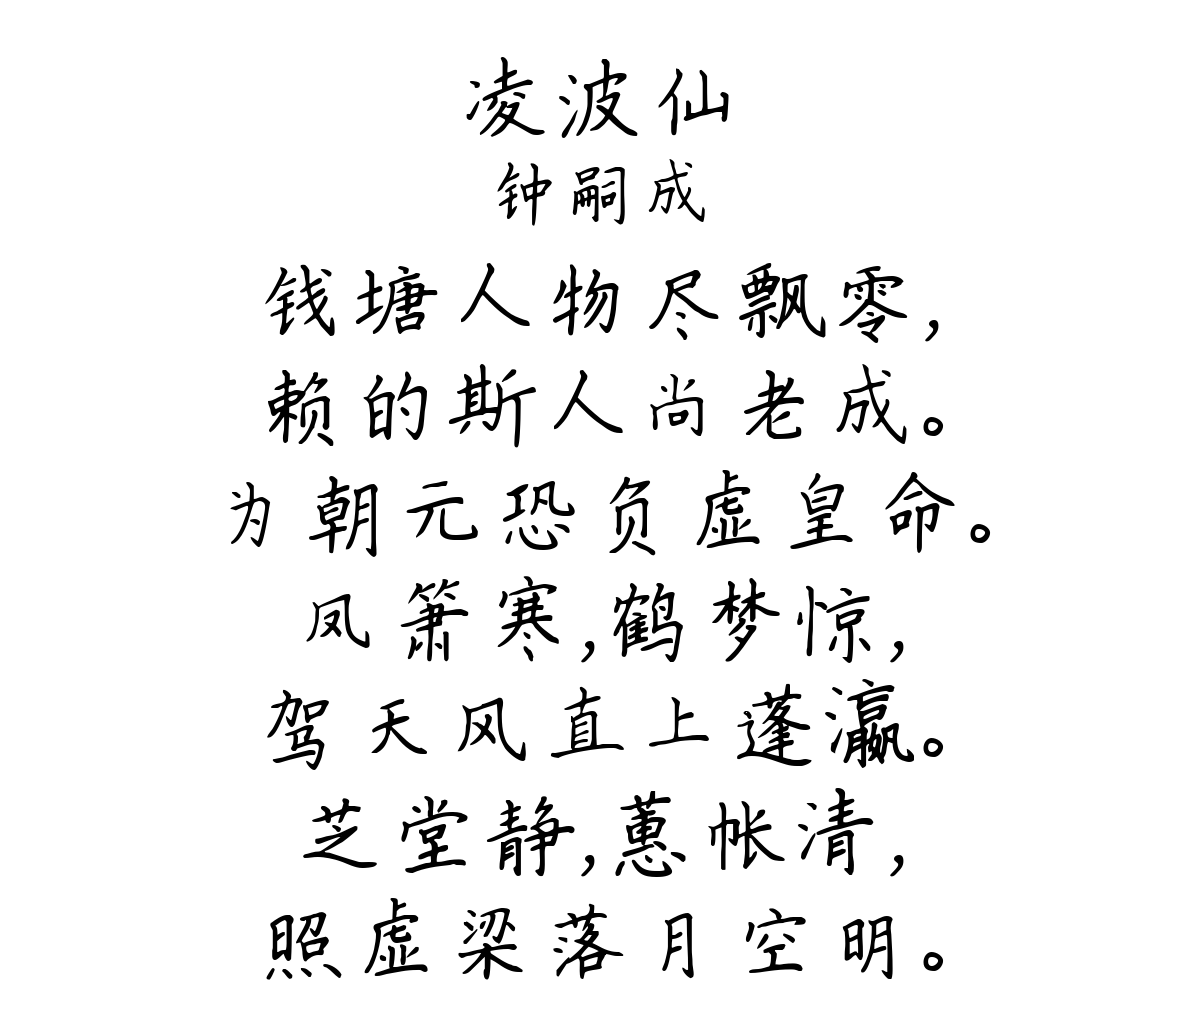 凌波仙
钟嗣成
钱塘人物尽飘零，
赖的斯人尚老成。
为朝元恐负虚皇命。
凤箫寒，鹤梦惊，
驾天风直上蓬瀛。
芝堂静，蕙帐清，
照虚梁落月空明。